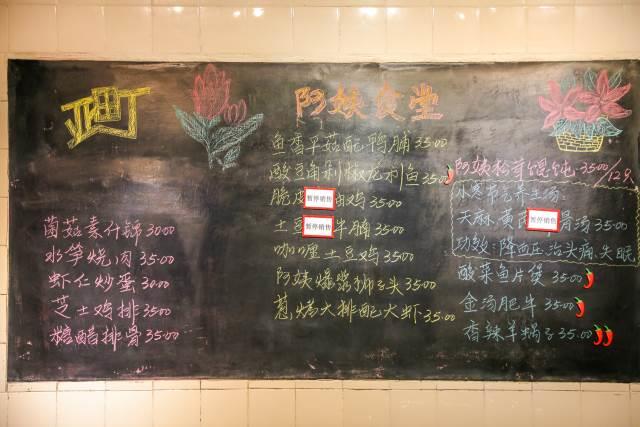 阿姨食堂
菌菇素什锦 30.00
水笋烧肉 35.00
虾仁炒蛋 30.00
芝士鸡排 35.00
糖醋排骨 35.00
鱼香平菇配鸭脯 35.00
酸豆角剁椒龙利鱼 35.00
脆皮 暂停销售 油鸡 35.00
土豆 暂停销售 牛腩 35.00
咖喱土豆鸡 35.00
阿姨爆浆狮子头 35.00
葱烤大排配大虾 35.00
阿姨松茸馄饨 35.00/12只
小寒节气养生汤:
天麻 黄芪 暂停销售 骨汤 35.00
功效:降血压,治头痛、失眠
酸菜鱼片煲 35.00
金汤肥牛 35.00
香辣羊蝎子 35.00